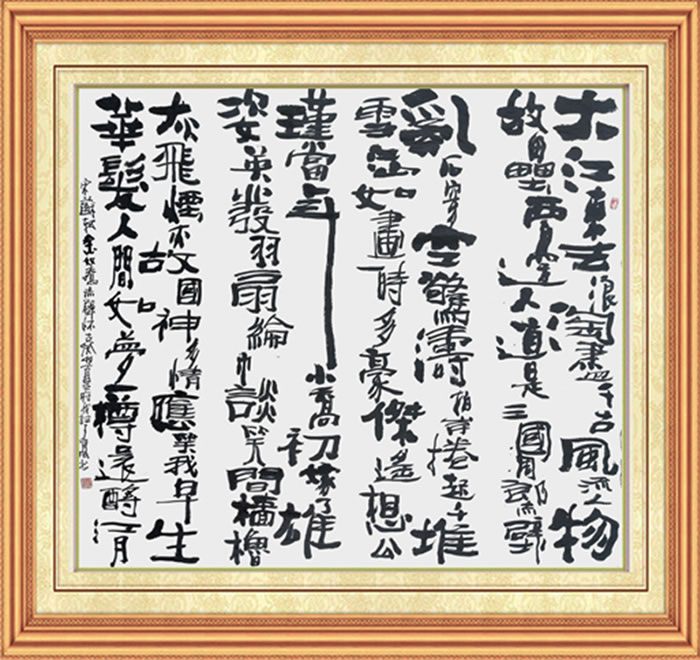 大江東去浪淘盡千古風流人物
故壘西邊人道是三國周郎赤壁
亂石穿空驚濤拍岸捲起千堆
雪江山如畫一時多豪傑遙想公
瑾當年小喬初嫁了雄
姿英發羽扇綸巾談笑間檣櫓
灰飛煙故國神多情應笑我早生
華髮人間如夢一樽還酹江月
宋蘇軾念奴嬌